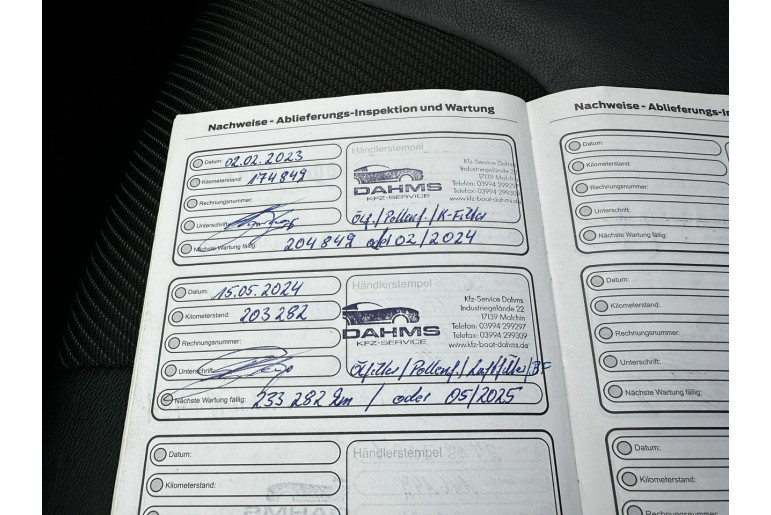 Nachweise - Ablieferungs-Inspektion und Wartung
Datum: 02.02.2023
Kilometerstand: 174849
Rechnungsnummer:
Unterschrift:
Nächste Wartung fällig: 204849 oder 02/2024
Händlerstempel
DAHMS
KFZ-SERVICE
Kfz-Service Dahms
Industriegelände 22
17139 Malchin
Telefon: 03994 299297
Telefax: 03994 299309
www.kfz-boot-dahms.de
Ölf./Pollenf./K-Filter
Datum: 15.05.2024
Kilometerstand: 203 282
Rechnungsnummer:
Unterschrift:
Nächste Wartung fällig: 233 282 km / oder 05/2025
Händlerstempel
DAHMS
KFZ-SERVICE
Kfz-Service Dahms
Industriegelände 22
17139 Malchin
Telefon: 03994 299297
Telefax: 03994 299309
www.kfz-boot-dahms.de
Ölfilter/Pollenf./Luftfilter/BF
Datum:
Kilometerstand:
Händlerstempel
Nachweise - Ablieferungs-
Datum:
Kilometerstand:
Rechnungsnummer:
Unterschrift:
Nächste Wartung fällig:
Datum:
Kilometerstand:
Rechnungsnummer:
Unterschrift:
Nächste Wartung fällig:
Datum:
Kilometerstand:
Rechnungsnummer: